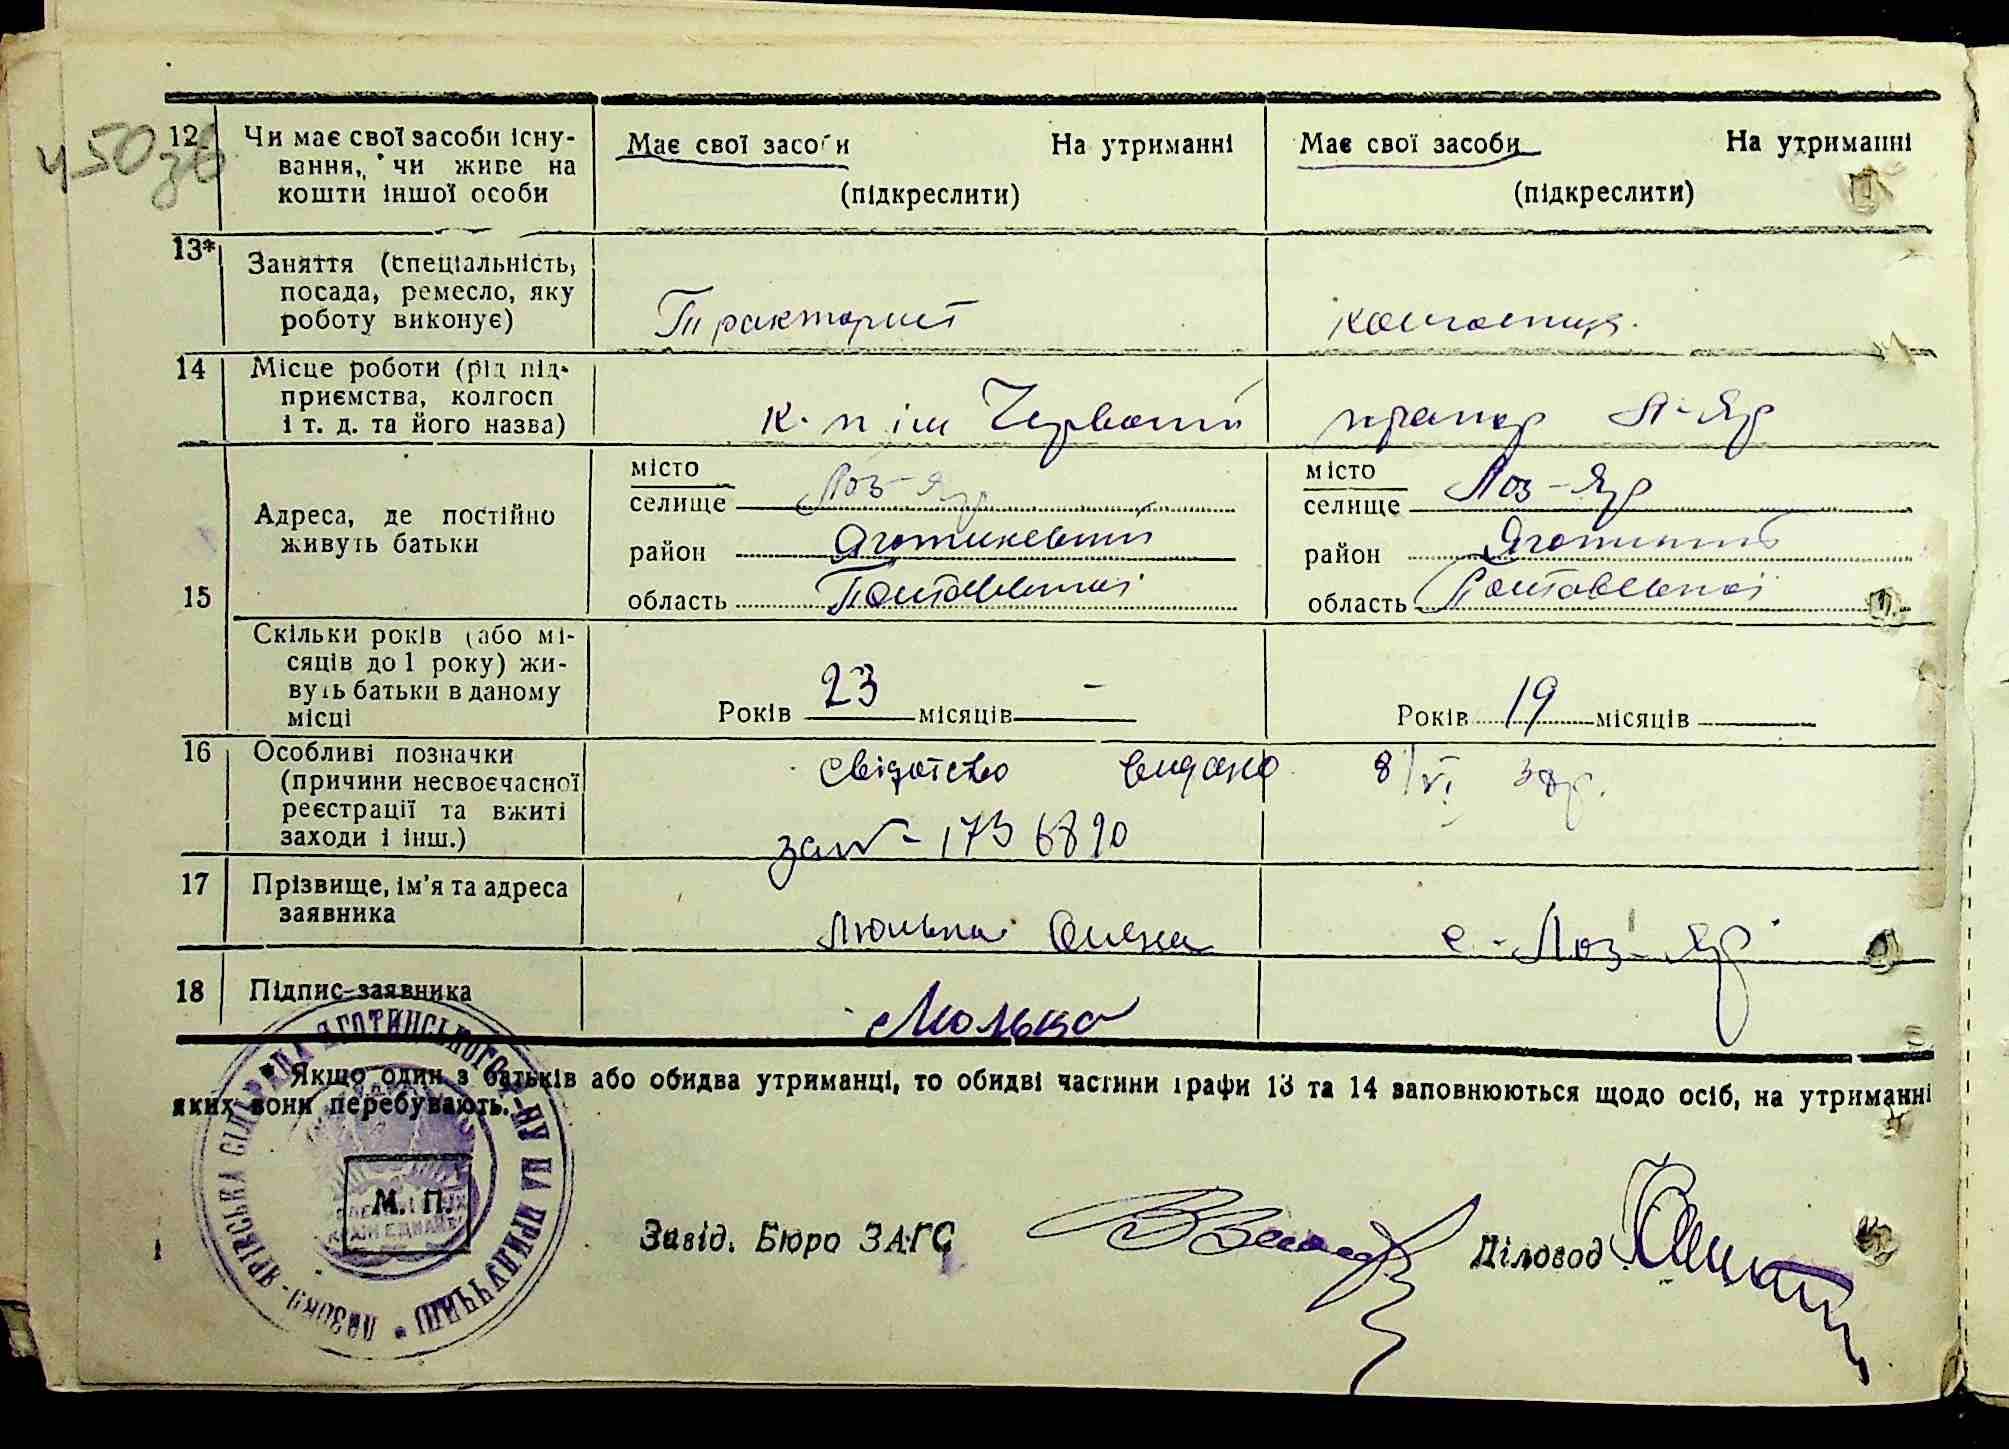 у50зв
12 Чи має свої засоби існу-
вання, чи живе на
кошти іншої особи
Має свої засоби На утриманні
(підкреслити)
Має свої засоби На утриманні
(підкреслити)
13* Заняття (спеціальність,
посада, ремесло, яку
роботу виконує)
Тракторист
колгоспниця.
14 Місце роботи (рід під-
приємства, колгосп
і т. д. та його назва)
к. п ім Червоний прапор Л-Яр
15 Адреса, де постійно
живуть батьки
місто
селище Лоз-Яр
район
область Полтавської
місто
селище Лоз-Яр
район
область Полтавської
Скільки років (або мі-
сяців до 1 року) жи-
вуть батьки в даному
місці
Років 23 місяців –
Років 19 місяців
16 Особливі позначки
(причини несвоєчасної
реєстрації та вжиті
заходи і інш.)
свідотство видано 8/VI 38р.
за № - 173 6890
17 Прізвище, ім'я та адреса
заявника
Люлька Олена с-Лоз-Яр
18 Підпис заявника
Люлька
* Якщо один з батьків або обидва утриманці, то обидві частини графи 13 та 14 заповнюються щодо осіб, на утриманні
яких вони перебувають.
ЛАЗОКО-ЯРІВСЬКА СІЛЬРАДА ЯГОТИНСЬКОГО Р-НУ НА ПРИЛУЧЧИНІ
М. П.
Завід. Бюро ЗАГС
Діловод